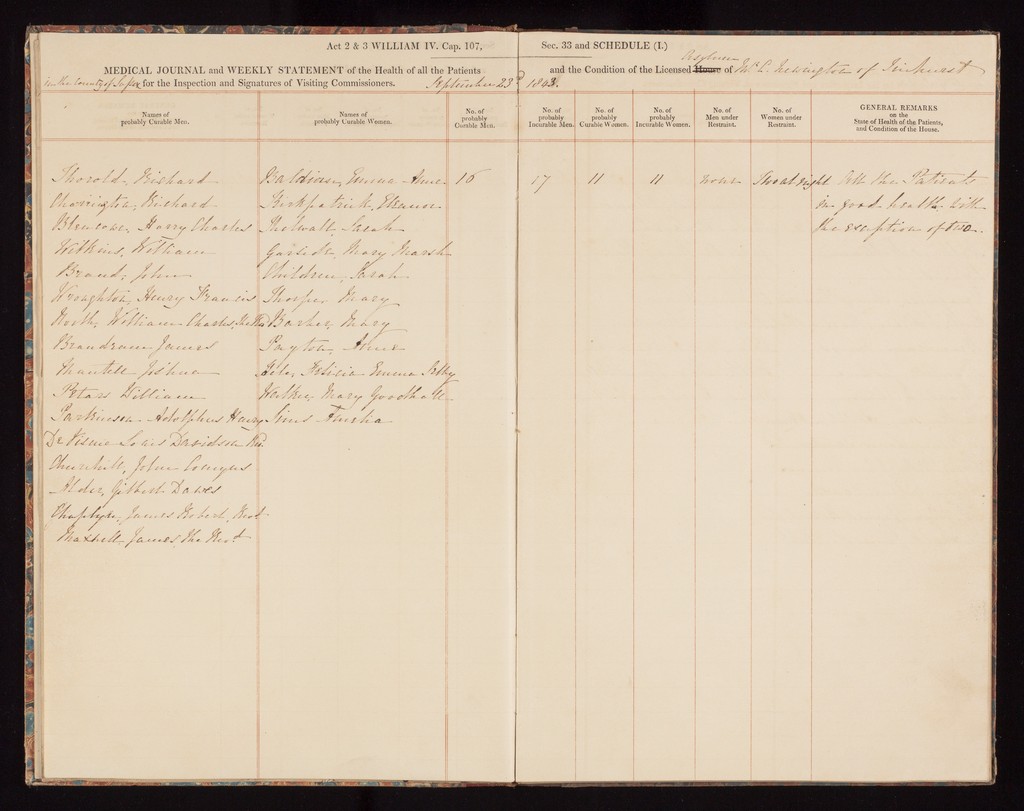 Act 2 & 3 WILLIAM IV. Cap. 107, Sec. 33 and SCHEDULE (I.)
MEDICAL JOURNAL and WEEKLY STATEMENT of the Health of all the Patients and the Condition of the Licensed House Asylum of Mr C. Newington of Ticehurst
in the County of Sussex for the Inspection and Signatures of Visiting Commissioners. September 23d 1843.
Names of probably Curable Men.
Names of probably Curable Women.
No. of probably Curable Men.
No. of probably Incurable Men.
No. of probably Curable Women.
No. of probably Incurable Women.
No. of Men under Restraint.
No. of Women under Restraint.
GENERAL REMARKS
on the
State of Health of the Patients,
and Condition of the House.
Thorold, Richard
Charrington, Richard
Harry Charles
Watkins, William
Brand, John
Wroughton, Henry Francis
North, William Charles, the
Brandram James
Mantell Joshua
William
Parkinson Adolphus Henry
De Visme Louis Davidson
Churchill, John
Alder, Gilbert Dawes
James Robert,
Maxwell, James The
Emma Anne
Kirkpatrick, Eleanor
Thelwall, Sarah
Mary Marsh
Children, Sarah
Thorpe, Mary
Barker, Mary
Payton, Anne
Felicia Emma
Walker, Mary Goodhall
Sims
16
17
11
11
none
at night
All the Patients
in good health with
the exception of two.